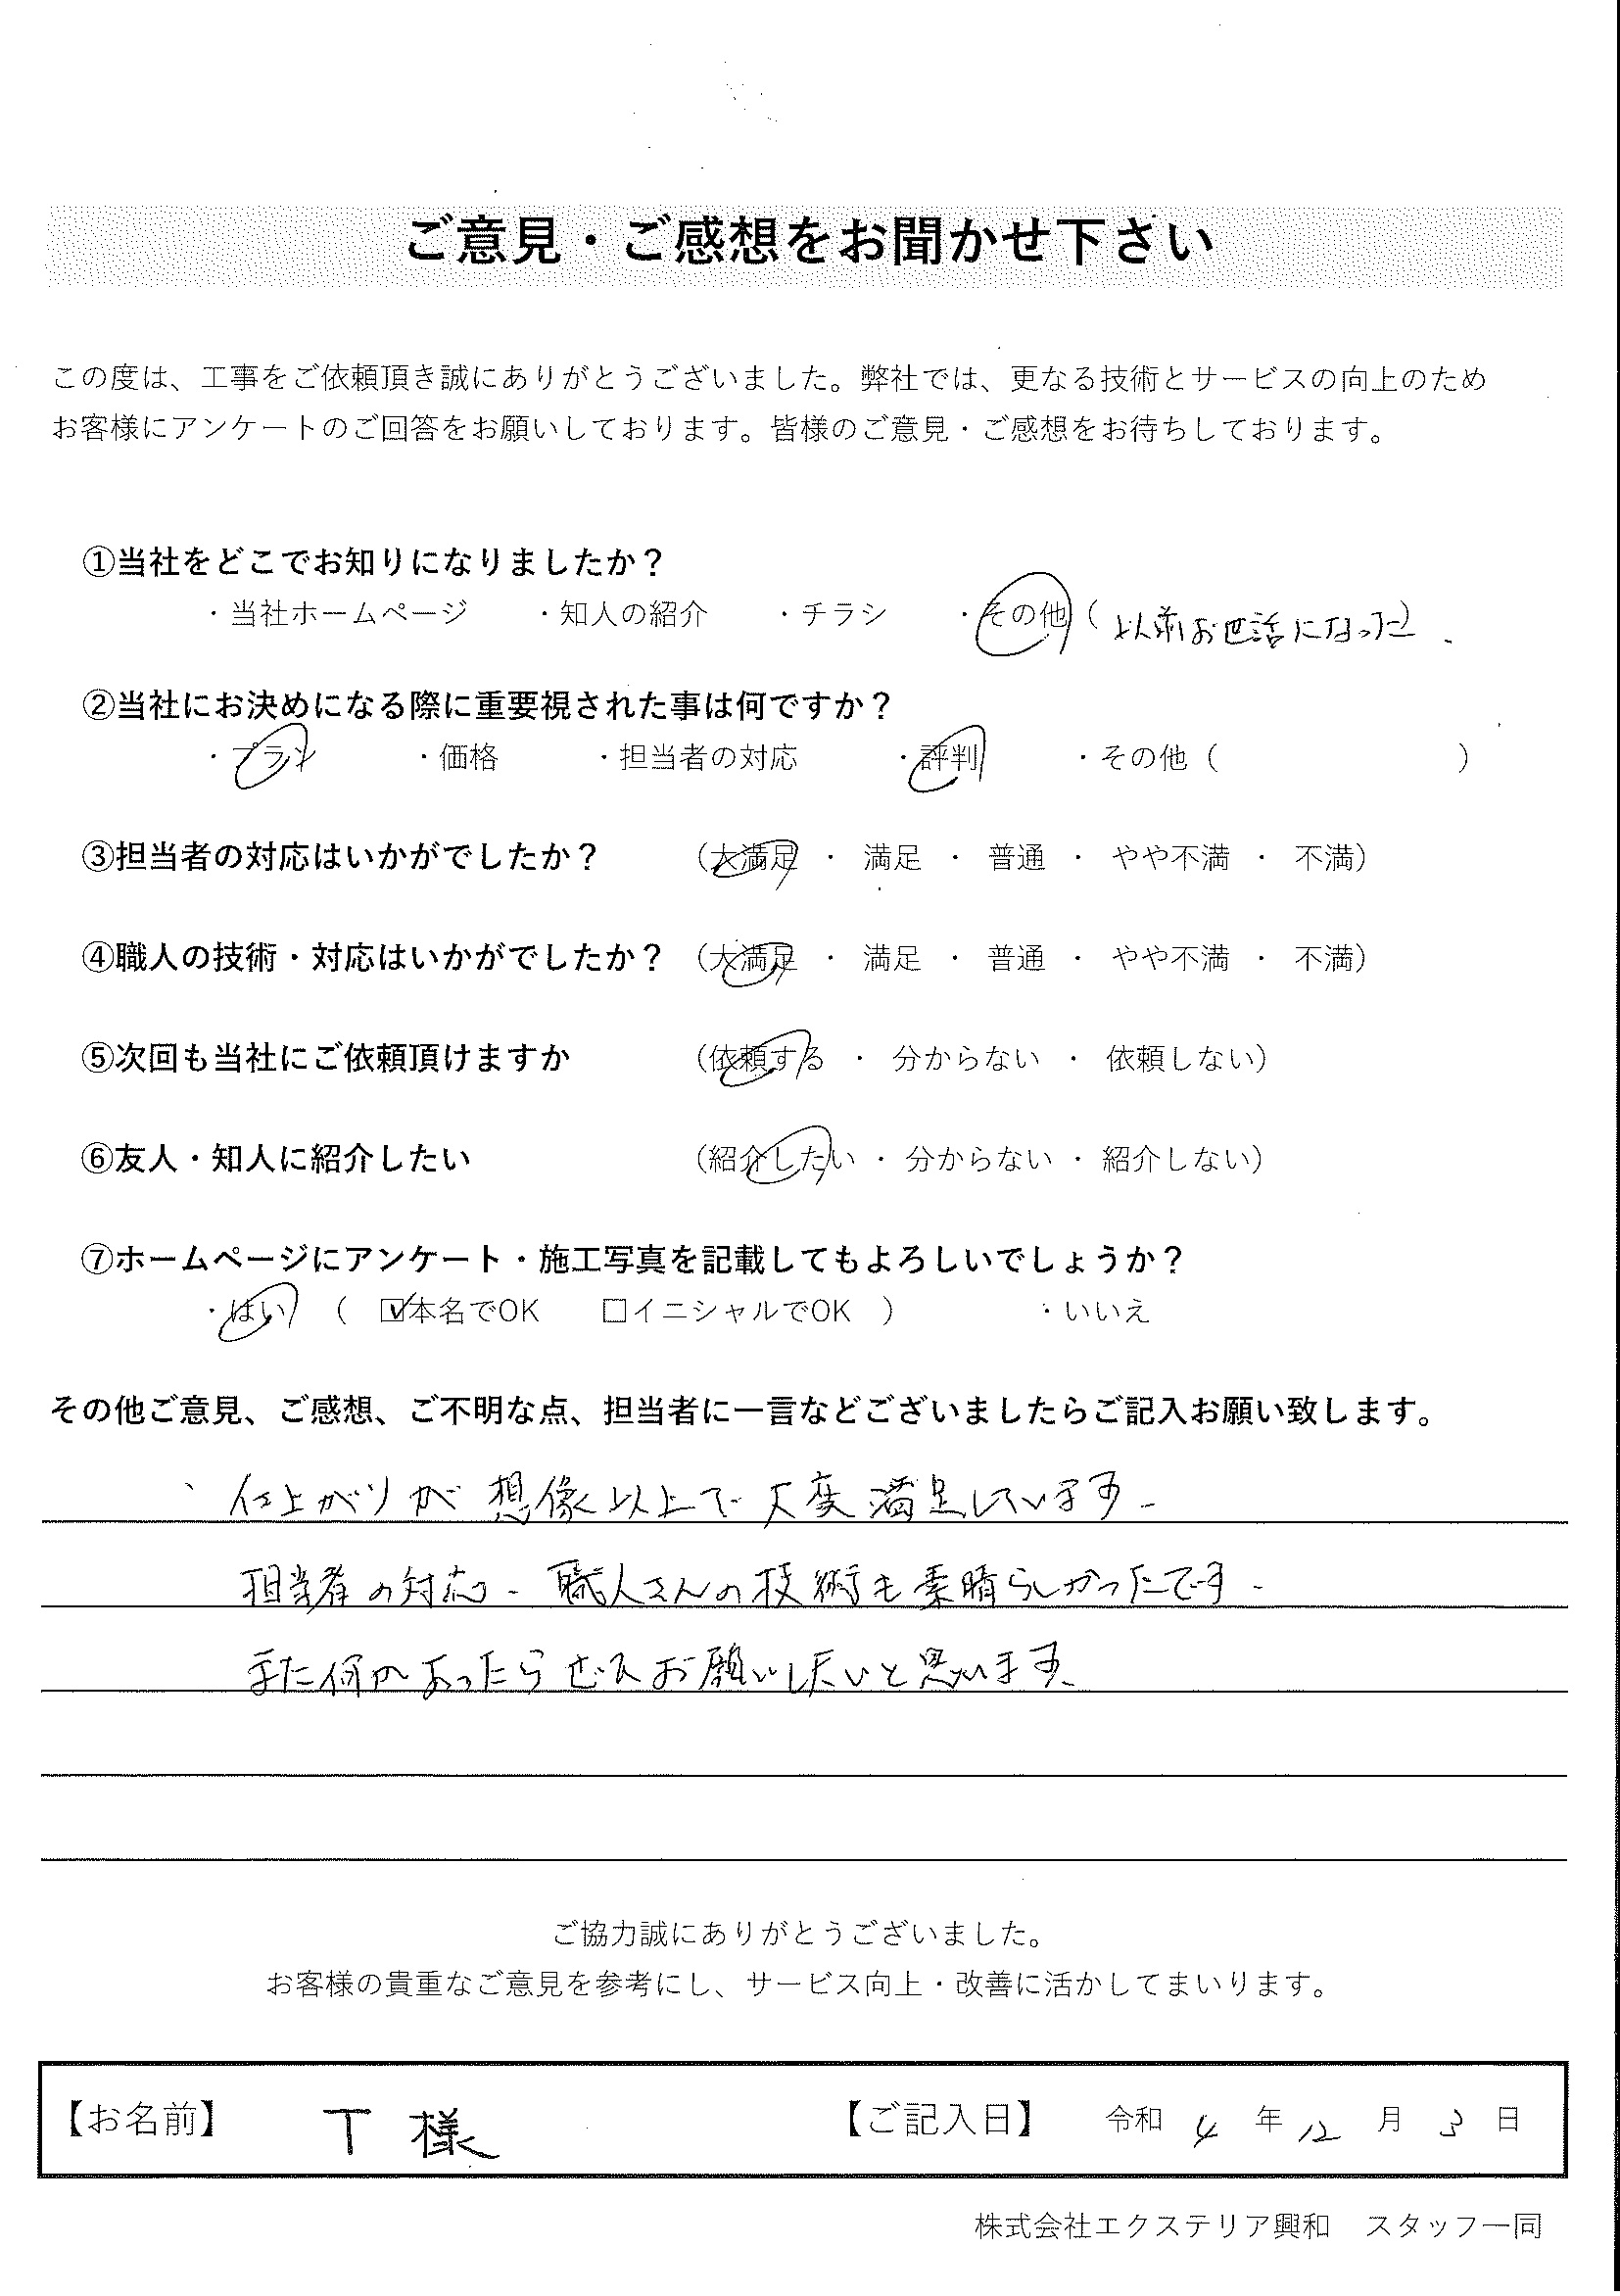 ご意見・ご感想をお聞かせ下さい
この度は、工事をご依頼頂き誠にありがとうございました。弊社では、更なる技術とサービスの向上のため
お客様にアンケートのご回答をお願いしております。皆様のご意見・ご感想をお待ちしております。
①当社をどこでお知りになりましたか？
・当社ホームページ ・知人の紹介 ・チラシ ・その他（以前お世話になった）
②当社にお決めになる際に重要視された事は何ですか？
・プラン ・価格 ・担当者の対応 ・評判 ・その他（ ）
③担当者の対応はいかがでしたか？ （大満足 ・ 満足 ・ 普通 ・ やや不満 ・ 不満）
④職人の技術・対応はいかがでしたか？ （大満足 ・ 満足 ・ 普通 ・ やや不満 ・ 不満）
⑤次回も当社にご依頼頂けますか （依頼する ・ 分からない ・ 依頼しない）
⑥友人・知人に紹介したい （紹介したい ・ 分からない ・ 紹介しない）
⑦ホームページにアンケート・施工写真を記載してもよろしいでしょうか？
・はい （ ☑本名でOK □イニシャルでOK ） ・いいえ
その他ご意見、ご感想、ご不明な点、担当者に一言などございましたらご記入お願い致します。
、仕上がりが想像以上で大変満足しています。
担当者の対応、職人さんの技術も素晴らしかったです。
また何かあったらぜひお願いしたいと思います。
ご協力誠にありがとうございました。
お客様の貴重なご意見を参考にし、サービス向上・改善に活かしてまいります。
【お名前】 T 様 【ご記入日】 令和 4 年 12 月 3 日
株式会社エクステリア興和 スタッフ一同